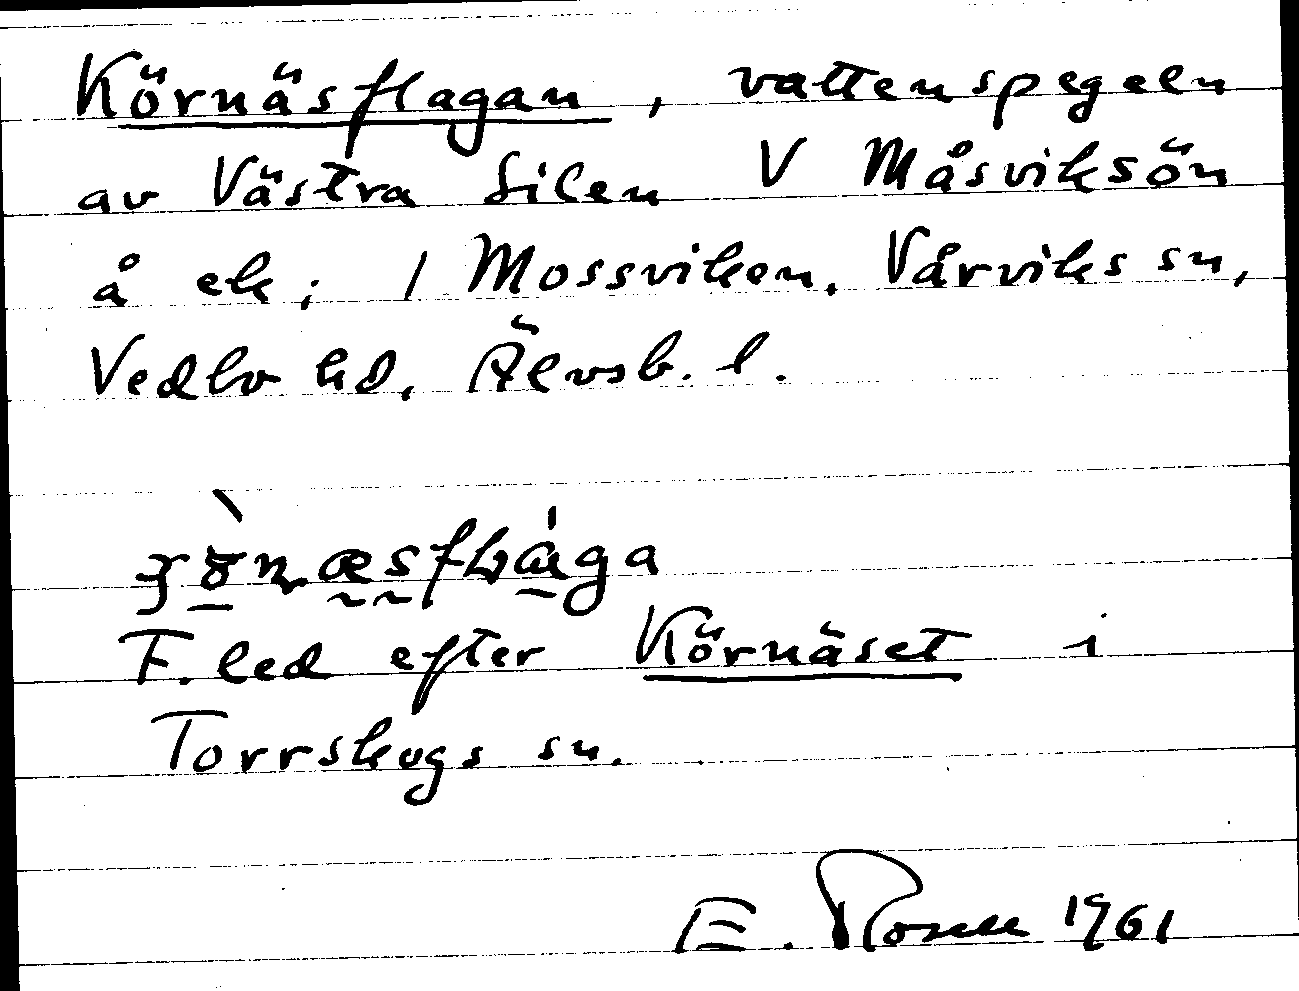 Körnäsflagan, vattenspegeln
av Västra Silen V Måsviksön
å ek; 1 Mossviken, Vårviks sn,
Vedbo hd, Älvsb. l.
F. led efter Körnäset i
Torrskogs sn.
E. Rosell 1961